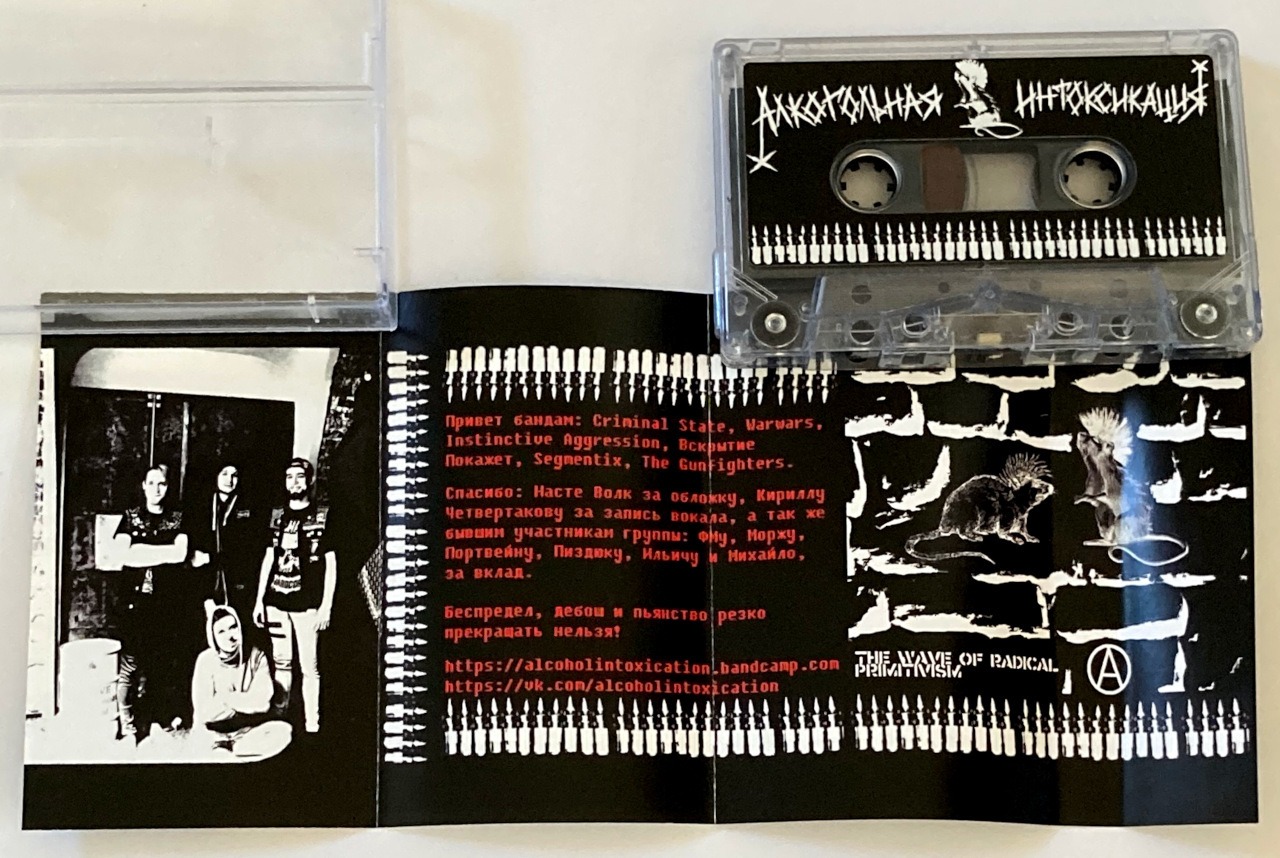 АЛКОГОЛЬНАЯ ИНТОКСИКАЦИЯ
Привет бандам: Criminal State, Warwars,
Instinctive Aggression, Вскрытие
Покажет, Segmentix, The Gunfighters.
Спасибо: Насте Волк за обложку, Кириллу
Четвертакову за запись вокала, а так же
бывшим участникам группы: ФМу, Моржу,
Портвейну, Пиздюку, Ильичу и Михайло,
за вклад.
Беспредел, дебош и пьянство резко
прекращать нельзя!
https://alcoholintoxication.bandcamp.com
https://vk.com/alcoholintoxication
THE WAVE OF RADICAL
PRIMITIVISM